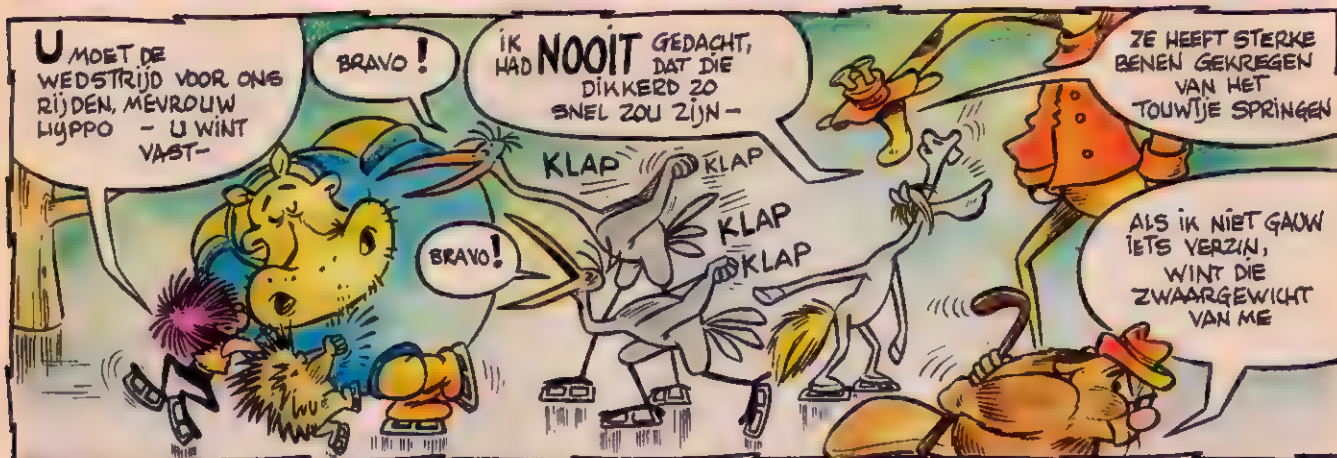 U MOET DE
WEDSTRIJD VOOR ONS
RIJDEN, MEVROUW
HYPPO - U WINT
VAST-
BRAVO!
IK
HAD NOOIT GEDACHT,
DAT DIE
DIKKERD ZO
SNEL ZOU ZIJN-
ZE HEEFT STERKE
BENEN GEKREGEN
VAN HET
TOUWTJE SPRINGEN
KLAP KLAP
BRAVO!
KLAP
KLAP
ALS IK NIET GAUW
IETS VERZIN,
WINT DIE
ZWAARGEWICHT
VAN ME